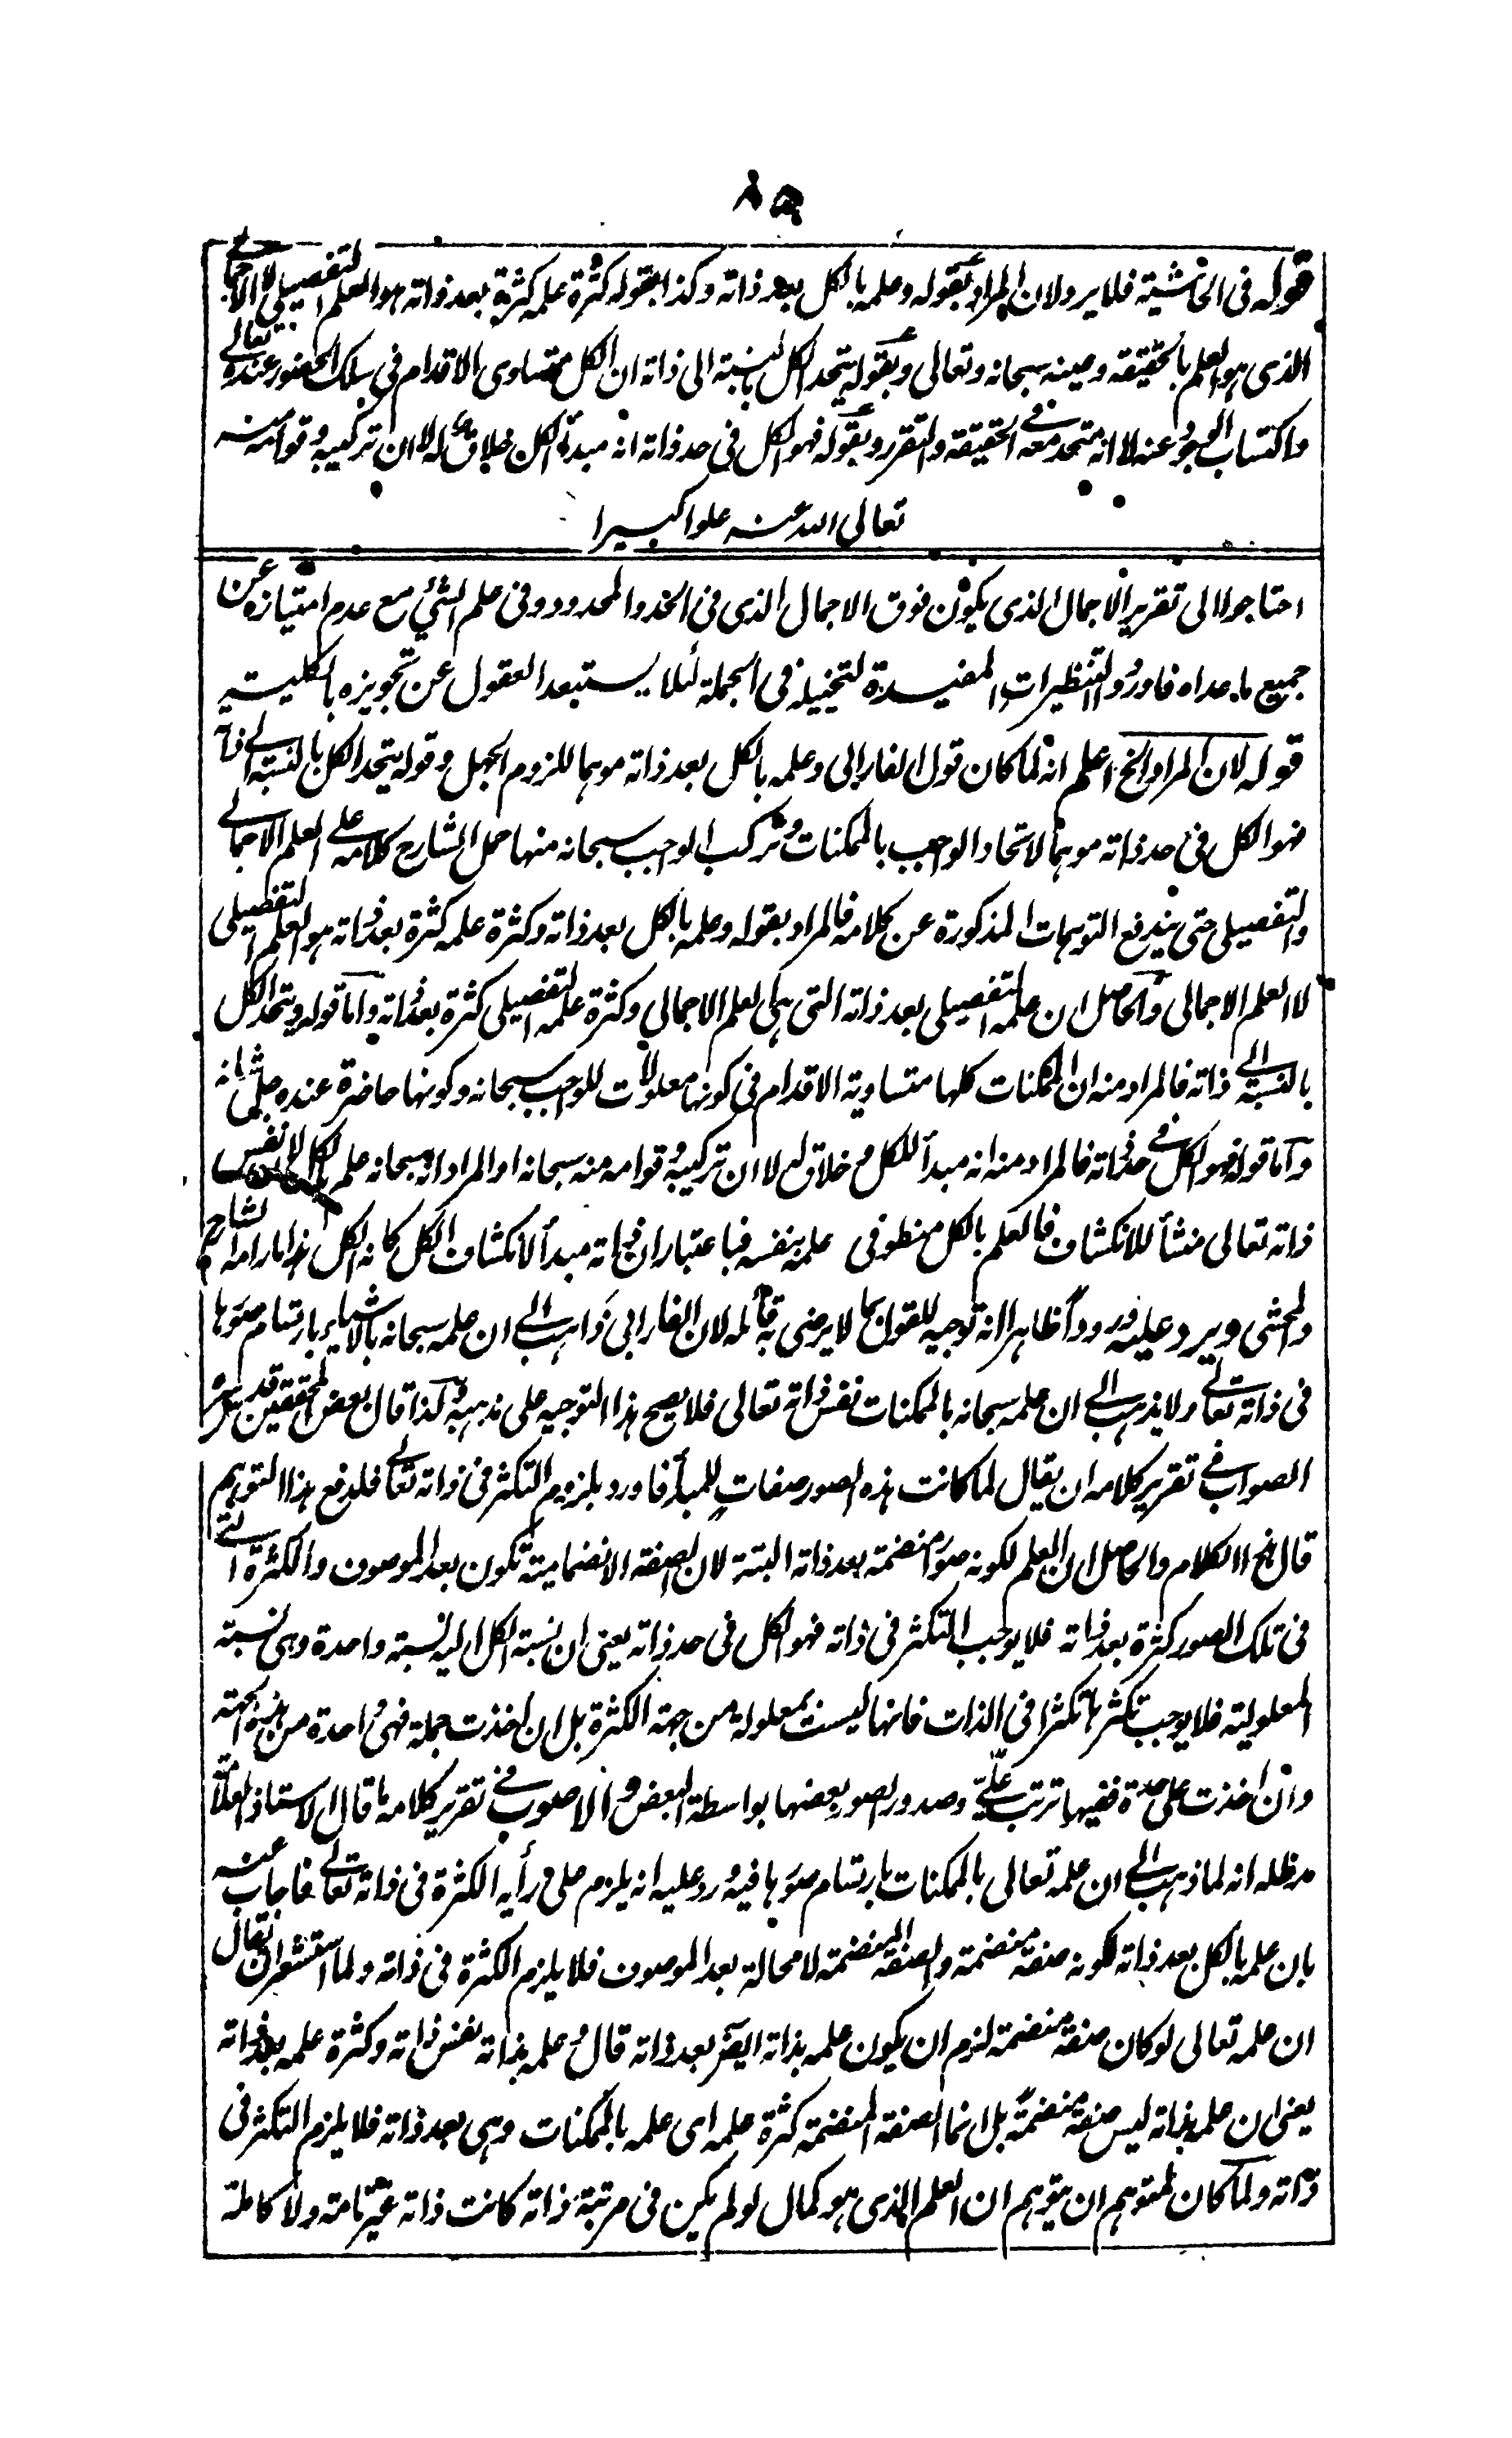 ٨٥
قوله فى الحاشية فلا يرد لان المراد بقوله وعلمه بالكل بعد ذاته وكذا بقوله كثرة علمه كثرة بعد ذاته هو العلم التفصيلى لا الاجمالى
الذى هو العلم بالحقيقة وعينه سبحانه وتعالى وبقوله يتحد الكل بالنسبة الى ذاته ان الكل متساوى الاقدام فى سلك الحضور عنده تعالى
واكتساب الوجود عنه لا انه متحد معه فى الحقيقة والتقرر وبقوله فهو الكل فى حد ذاته انه مبدأ الكل وخلاق له لا ان تركيبه وقوامه منه
تعالى الله عنه علوا كبيرا
احتاجوا الى تقرير الاجمال الذى يكون فوق الاجمال الذى فى الحد والمحدود وفى علم الشئ مع عدم امتيازه عن
جميع ما عداه فاوردوا التنظيرات المفيدة لتخييله فى الجملة لئلا يستبعد العقول عن تجويزه بالكلية
قوله لان المراد الخ اعلم انه لما كان قول الفارابى وعلمه بالكل بعد ذاته موهما للزوم الجهل وقوله يتحد الكل بالنسبة الى ذاته
فهو الكل فى حد ذاته موهما لاتحاد الواجب بالممكنات وتركب الواجب سبحانه منها حمل الشارح كلامه على العلم الاجمالى
والتفصيلى حتى يندفع التوهمات المذكورة عن كلامه فالمراد بقوله وعلمه بالكل بعد ذاته وكثرة علمه كثرة بعد ذاته هو العلم التفصيلى
لا العلم الاجمالى والحاصل ان علمه التفصيلى بعد ذاته التى هى العلم الاجمالى وكثرة علمه التفصيلى كثرة بعد ذاته واما قوله ويتحد الكل
بالنسبة الى ذاته فالمراد منه ان الممكنات كلها متساوية الاقدام فى كونها معلولات للواجب سبحانه وكونها حاضرة عنده جل شانه
واما قوله فهو الكل فى حد ذاته فالمراد منه انه مبدأ للكل وخلاق له لا ان تركيبه وقوامه منه سبحانه او المراد انه سبحانه علم بالكل لان نفس
ذاته تعالى منشأ للانكشاف فالعلم بالكل منطو فى علمه بنفسه فباعتبار ان ذاته مبدأ لانكشاف الكل كانه الكل هذا ما رامه الشارح
والمحشى ويرد عليه ورودا ظاهرا انه توجيه للقول بما لا يرضى به قائله لان الفارابى ذاهب الى ان علمه سبحانه بالاشياء بارتسام صورها
فى ذاته تعالى ولا يذهب الى ان علمه سبحانه بالممكنات نفس ذاته تعالى فلا يصح هذا التوجيه على مذهبه كذا قال بعض المحققين قدس سره
الصواب فى تقرير كلامه ان يقال لما كانت هذه الصور صفات للمبدأ فاورد بلزوم التكثر فى ذاته تعالى فلدفع هذا التوهم
قال هذا الكلام والحاصل ان العلم لكونه صورا منضمة بعد ذاته البتة لان الصفة الانضمامية تكون بعد الموصوف والكثرة التى
فى تلك الصور كثرة بعد ذاته فلا يوجب التكثر فى ذاته فهو الكل فى حد ذاته يعنى ان نسبة الكل اليه نسبة واحدة وهى نسبة
المعلولية فلا يوجب تكثرها تكثرا فى الذات فانها ليست بمعلولة من جهة الكثرة بل ان اخذت جملة فهى واحدة من هذه الجهة
وان اخذت على حدة ففيها ترتب علّى وصدور الصور بعضها بواسطة البعض والاصوب فى تقرير كلامه ما قال الاستاذ العلامة
مد ظله انه لما ذهب الى ان علمه تعالى بالممكنات بارتسام صورها فيه ورد عليه انه يلزم على رأيه الكثرة فى ذاته تعالى فاجاب عنه
بان علمه بالكل بعد ذاته لكونه صفة منضمة والصفة المنضمة لا محالة بعد الموصوف فلا يلزم الكثرة فى ذاته ولما استشعر ان يقال
ان علمه تعالى لو كان صفة منضمة لزم ان يكون علمه بذاته ايضا بعد ذاته قال علمه بذاته نفس ذاته وكثرة علمه بعد ذاته
يعنى ان علمه بذاته ليس صفة منضمة بل انما الصفة المنضمة كثرة علمه اى علمه بالممكنات وهى بعد ذاته فلا يلزم التكثر فى
ذاته ولما كان لمتوهم ان يتوهم ان العلم الذى هو كمال لو لم يكن فى مرتبة ذاته كانت ذاته غير تامة ولا كاملة